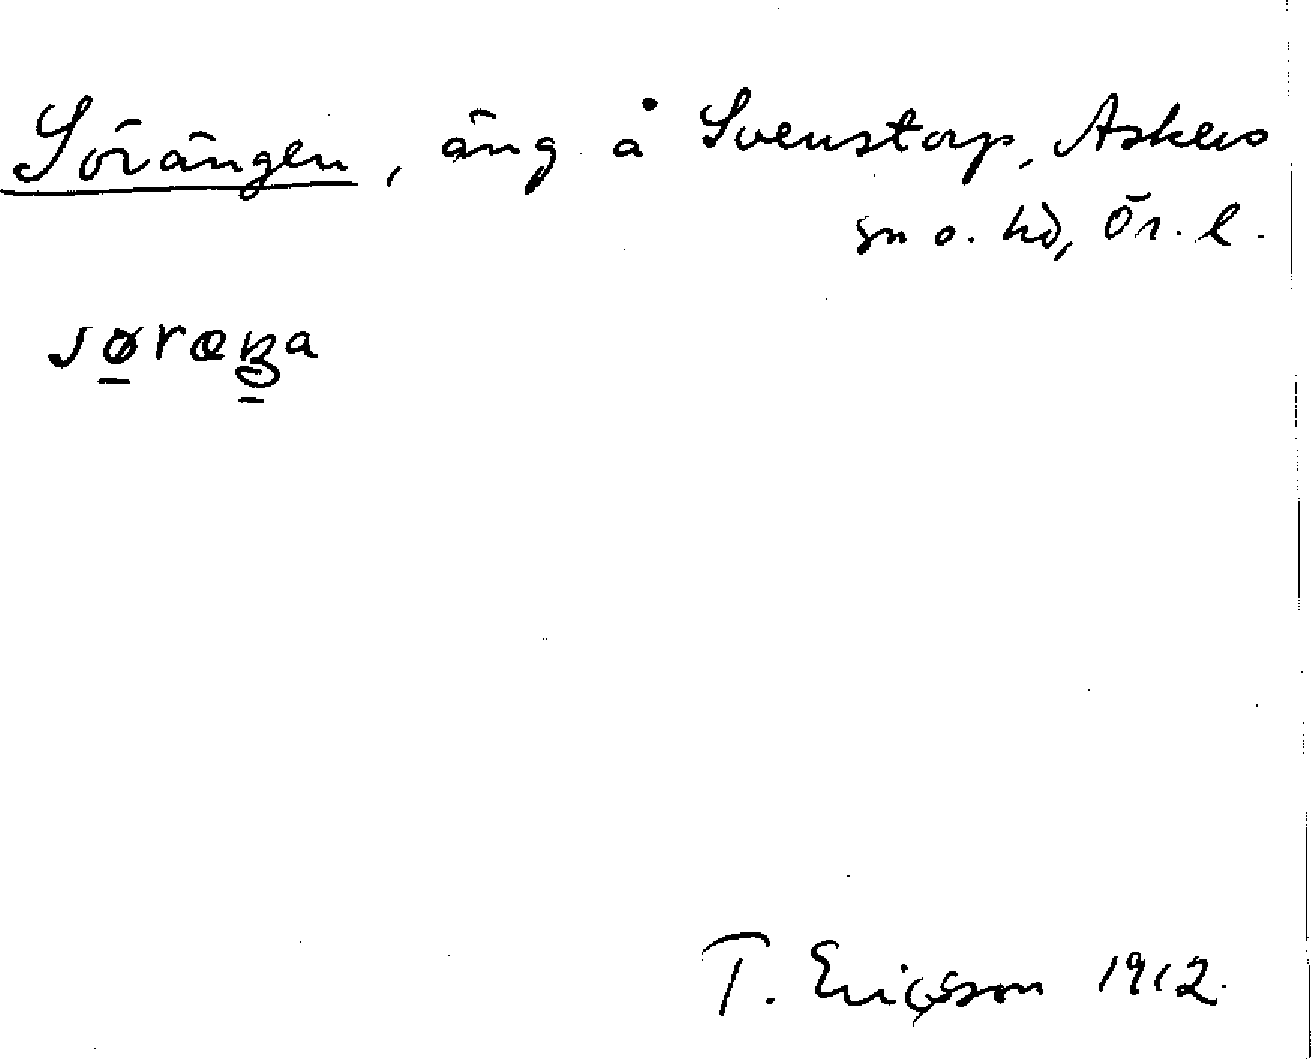 Sörängen, äng å Svenstorp, Askers
sn o. hd, Ör. l.
T. Ericsson 1912.